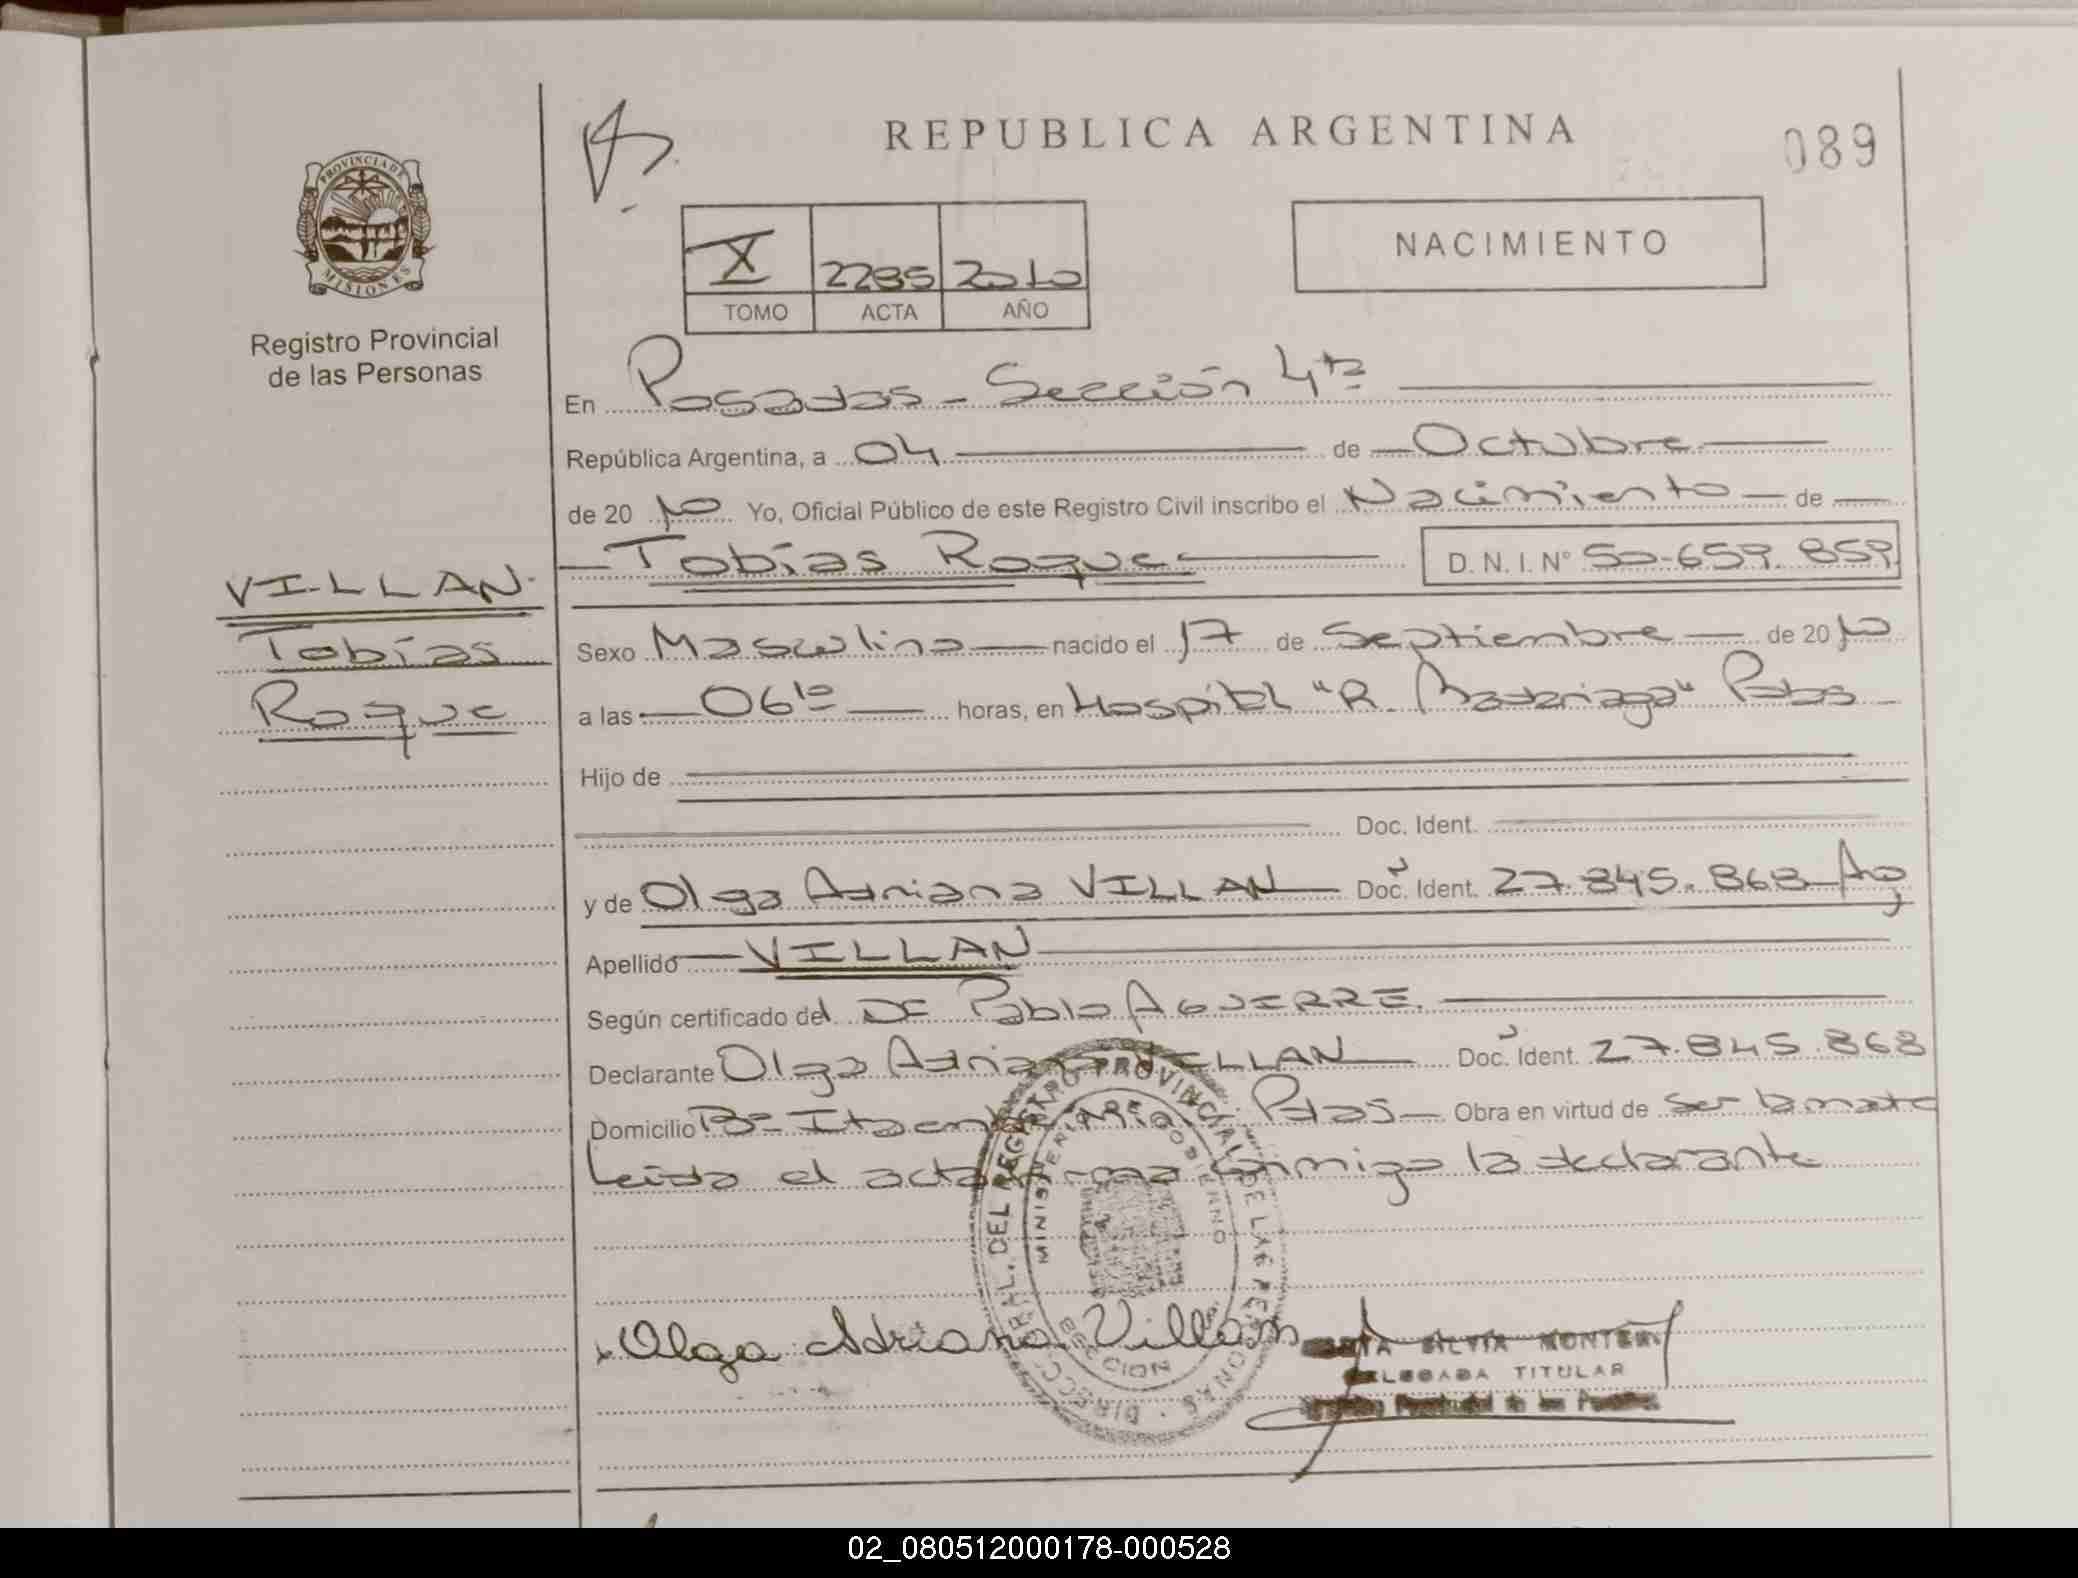 REPUBLICA ARGENTINA
089
PROVINCIA DE MISIONES
Registro Provincial
de las Personas
X 2285 2010
TOMO ACTA AÑO
NACIMIENTO
En Posadas - Sección 4ta
República Argentina, a 04 de Octubre
de 2010 Yo, Oficial Público de este Registro Civil inscribo el Nacimiento de
Tobías Roque D. N. I. N° 50.659.859
VILLAN
Tobías
Roque
Sexo Masculino nacido el 17 de Septiembre de 2010
a las 06 10 horas, en Hospital "R. Madariaga" Pdas
Hijo de
Doc. Ident.
y de Olga Adriana VILLAN Doc. Ident. 27.845.868 Arg
Apellido VILLAN
Según certificado del Dr Pablo AGUIRRE.
Declarante Olga Adriana VILLAN Doc. Ident. 27.845.868
Domicilio B° Itaembé Mini Pdas Obra en virtud de ser la madre
Leída el acta firma conmigo la declarante
Olga Adriana Villan
SILVIA MONTERO
DELEGADA TITULAR
02_080512000178-000528